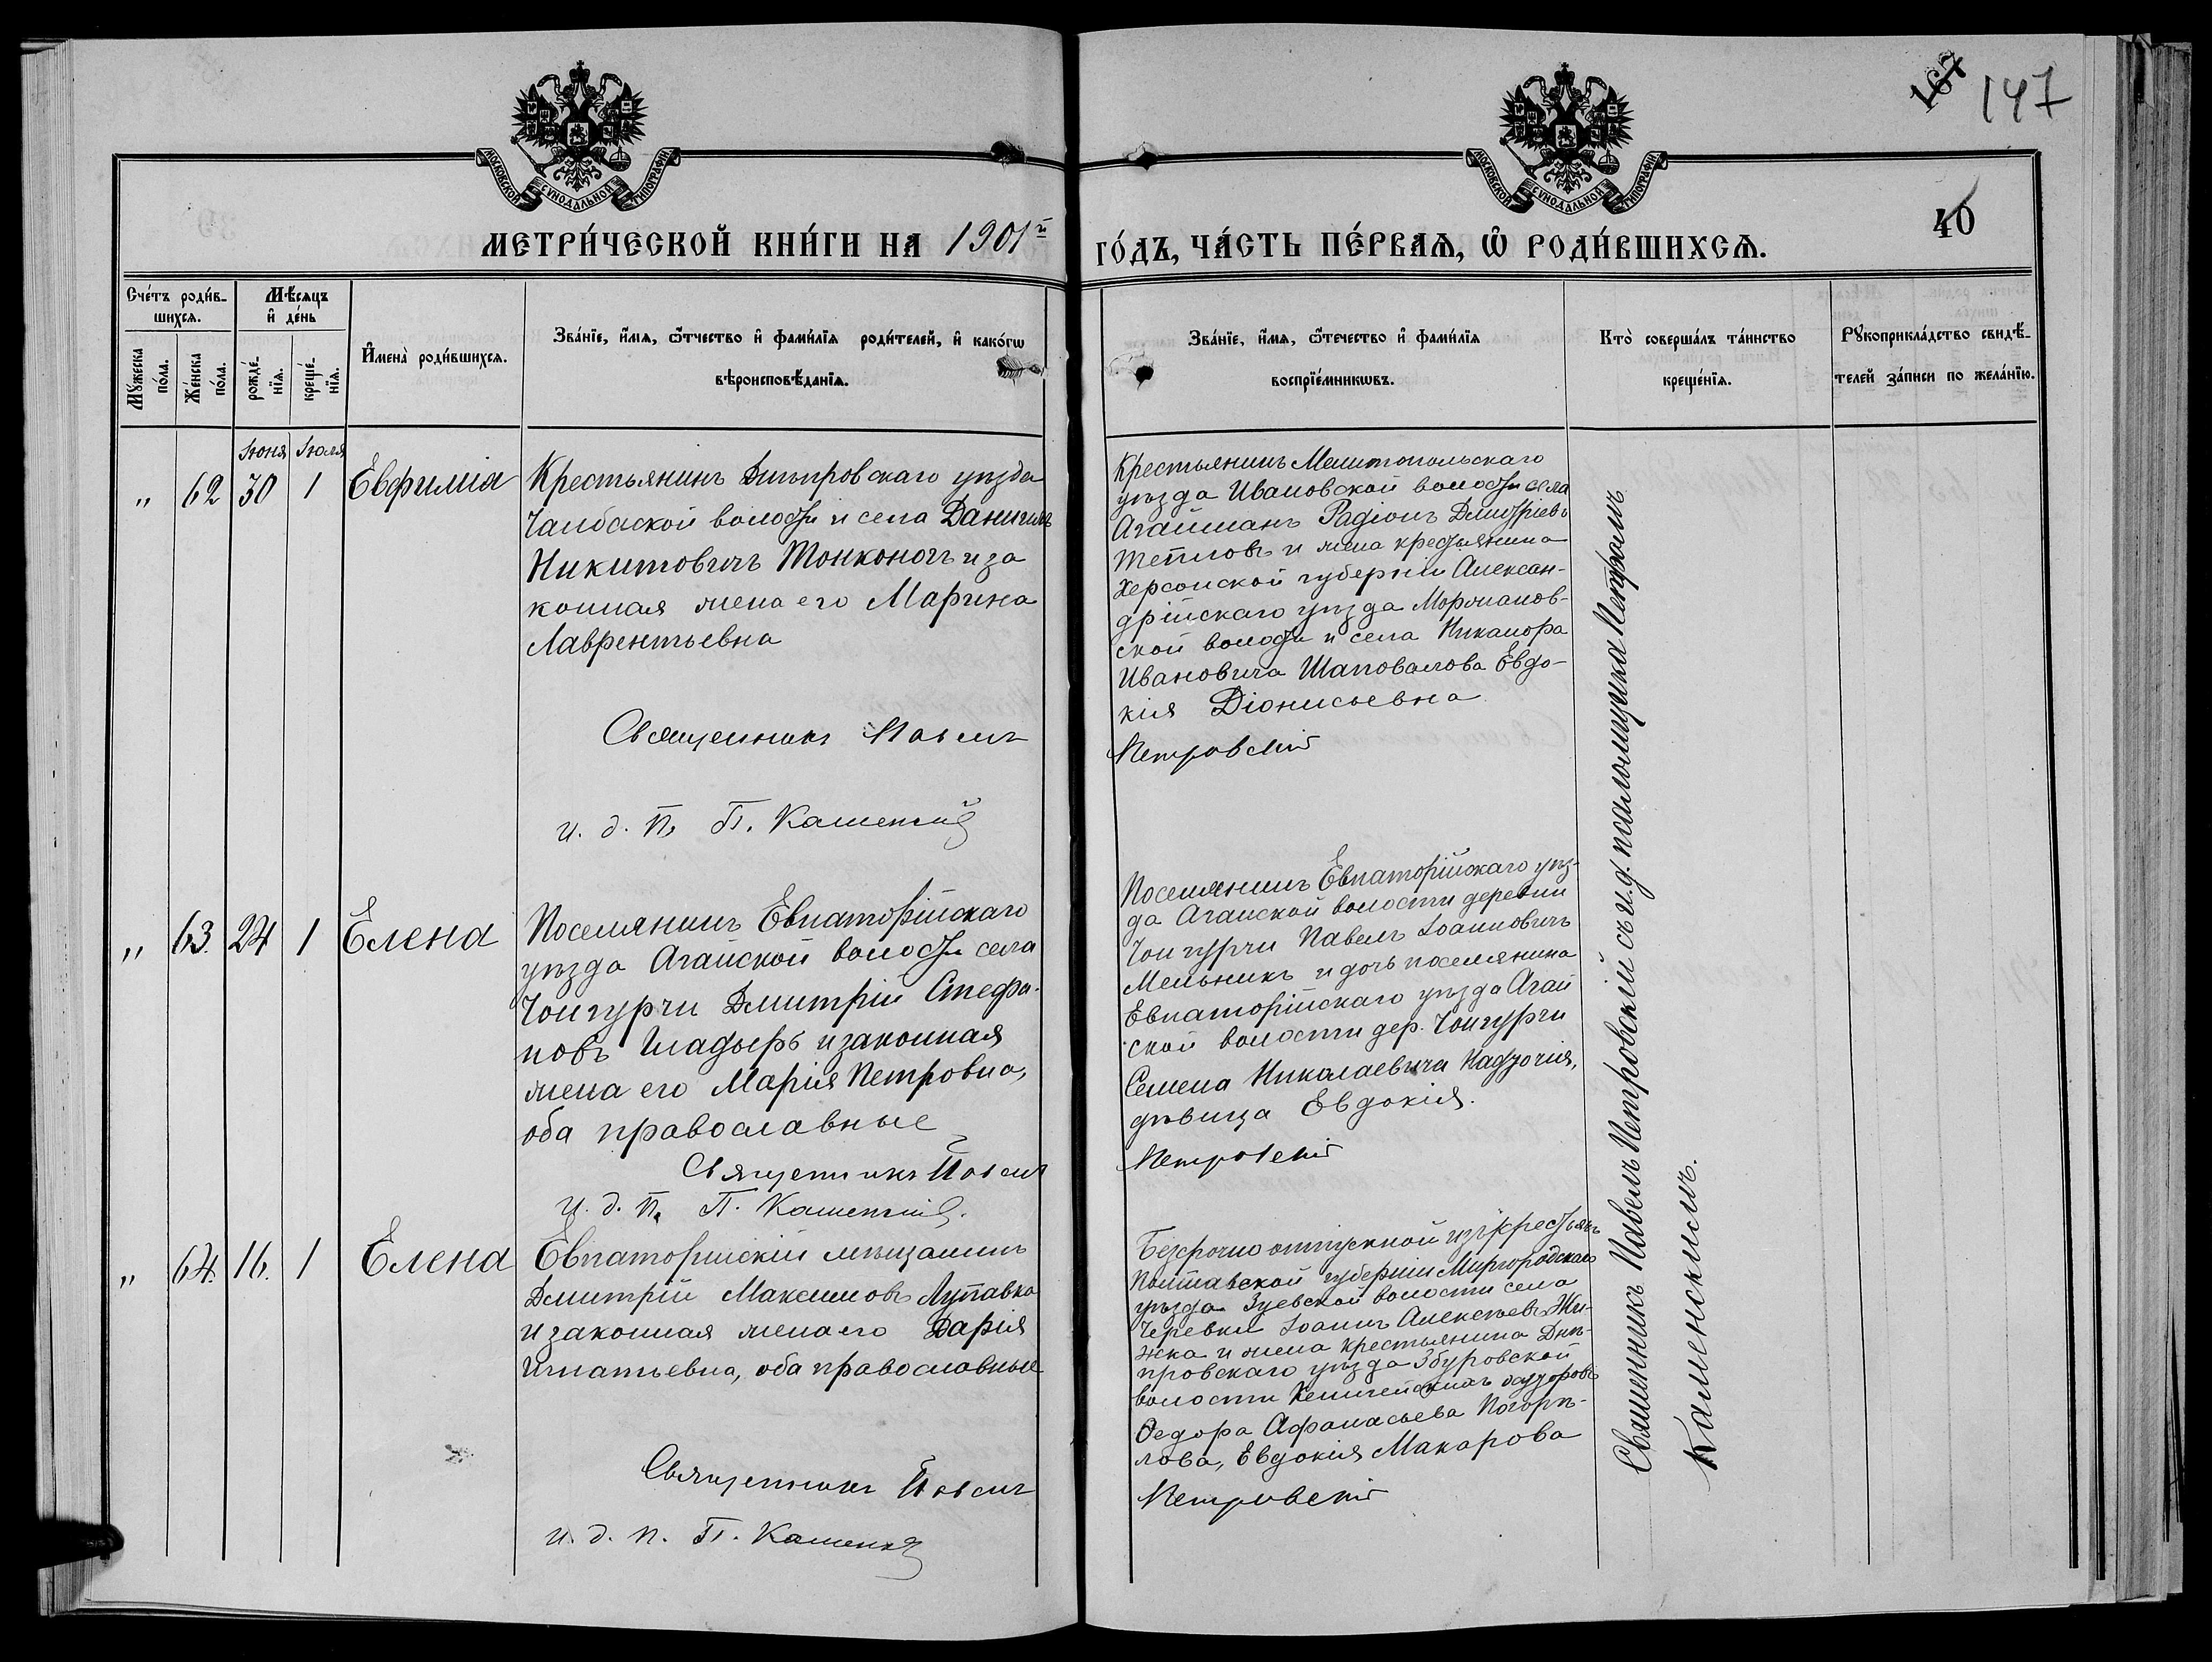 167
147
МОСКОВСКОЙ СѴНОДАЛЬНОЙ ТИПОГРАФІИ
МОСКОВСКОЙ СѴНОДАЛЬНОЙ ТИПОГРАФІИ
40
МЕТРИ́ЧЕСКОЙ КНИ́ГИ НА 1901й
ГО́ДЪ, ЧА́СТЬ ПЕ́РВАѦ, Ѽ РОДИ́ВШИХСѦ.
Сче́тъ роди́в-
шихсѧ.
Мѣ́сѧцъ
и҆ де́нь
Мꙋ́жеска
по́ла.
Же́нска
по́ла.
рожде́-
нїѧ.
креще́-
нїѧ.
И҆мена̀ роди́вшихсѧ.
Зва́нїе, и҆́мѧ, ѻ҆́тчество и҆ фамѝлїѧ роди́телей, и҆ како́гѡ
вѣроисповѣ́данїѧ.
Зва́нїе, и҆́мѧ, ѻ҆́течество и҆ фамѝлїѧ
воспрїе́мникѡвъ.
Кто̀ соверша́лъ та́инство
креще́нїѧ.
Рꙋкоприкла́дство свидѣ́-
телей за́писи по жела́нїю.
Іюня Іюля
" 62 30 1 Евфимія
Крестьянинъ Днѣпровскаго уѣзда
Чалбаской волости и села Даниилъ
Никитовичъ Тонконогъ и за
конная жена его Марина
Лаврентьевна
Священникъ Павелъ
и. д. п. П. Каменскій
Крестьянинъ Мелитопольскаго
уѣзда Ивановской волости села
Агайманъ Радіонъ Дмитріевъ
Тепловъ и жена крестьянина
Херсонской губерніи Алексан-
дрійскаго уѣзда
ской волости и села Никанора
Ивановича Шаповалова Евдо-
кія Діонисьевна
Петровскій
" 63. 24 1 Елена
Поселянинъ Евпаторійскаго
уѣзда Агайской волости села
Чонгурчи Дмитрій Стефа-
новъ и законная
жена его Марія Петровна,
оба православные
Священникъ Павелъ
и. д. п. П. Каменскій.
Поселянинъ Евпаторійскаго уѣз-
да Агайской волости деревни
Чонгурчи Павелъ Іоанновичъ
Мельникъ и дочь поселянина
Евпаторійскаго уѣзда Агай
ской волости дер. Чонгурчи
Семена Николаевича
дѣвица Евдокія.
Петровскій
" 64. 16. 1 Елена
Евпаторійскій мѣщанинъ
Дмитрій Максимовъ Лупавка
и законная жена его Дарія
Игнатьевна, оба православные
Священникъ Павелъ
и. д. п. П. Каменскій
Безсрочно отпускной изъ крестьянъ
Полтавской губерніи Миргородскаго
уѣзда Зуевской волости села
Черевки Іоаннъ Алексѣевъ Жи-
жка и жена крестьянина Днѣ-
провскаго уѣзда Збурьевской
волости хуторовъ
Ѳедора Афанасьева Погорѣ-
лова, Евдокія Макарова
Петровскій
Священникъ Павелъ Петровскій съ и. д. псаломщика Петромъ
Каменскимъ.